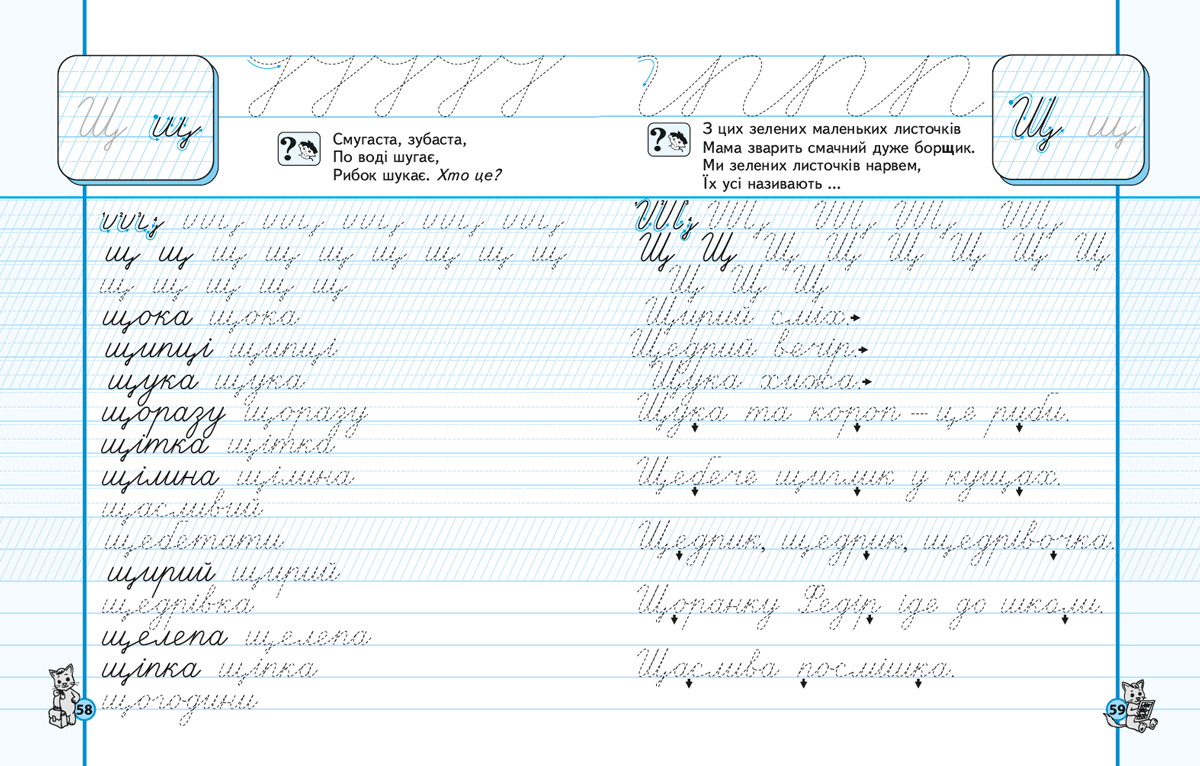 Щ щ
?
Смугаста, зубаста,
По воді шугає,
Рибок шукає. Хто це?
щ щ щ щ щ щ щ щ щ
щ щ щ щ щ
щока щока
щипці щипці
щука щука
щоразу щоразу
щітка щітка
щілина щілина
щасливий
щебетати
щирий щирий
щедрівка
щелепа щелепа
щіпка щіпка
щогодини
58
?
З цих зелених маленьких листочків
Мама зварить смачний дуже борщик.
Ми зелених листочків нарвем,
Їх усі називають ...
Щ щ
Щ Щ Щ Щ Щ Щ Щ Щ
Щ Щ Щ
Щирий сміх.
Щедрий вечір.
Щука хижа.
Щука та короп — це риби.
Щебече щиглик у кущах.
Щедрик, щедрик, щедрівочка.
Щоранку Федір іде до школи.
Щаслива посмішка.
59